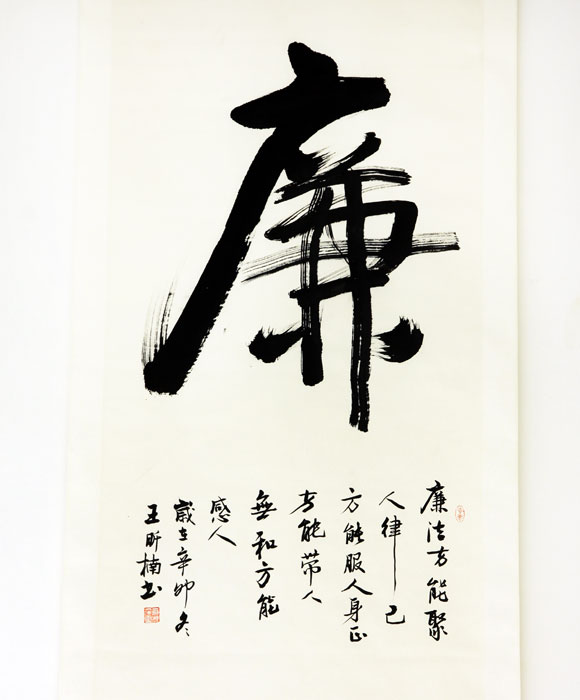 廉
廉洁方能聚
人律己
方能服人身正
方能带人
無私方能
感人
歲在辛卯冬
王昕楠书